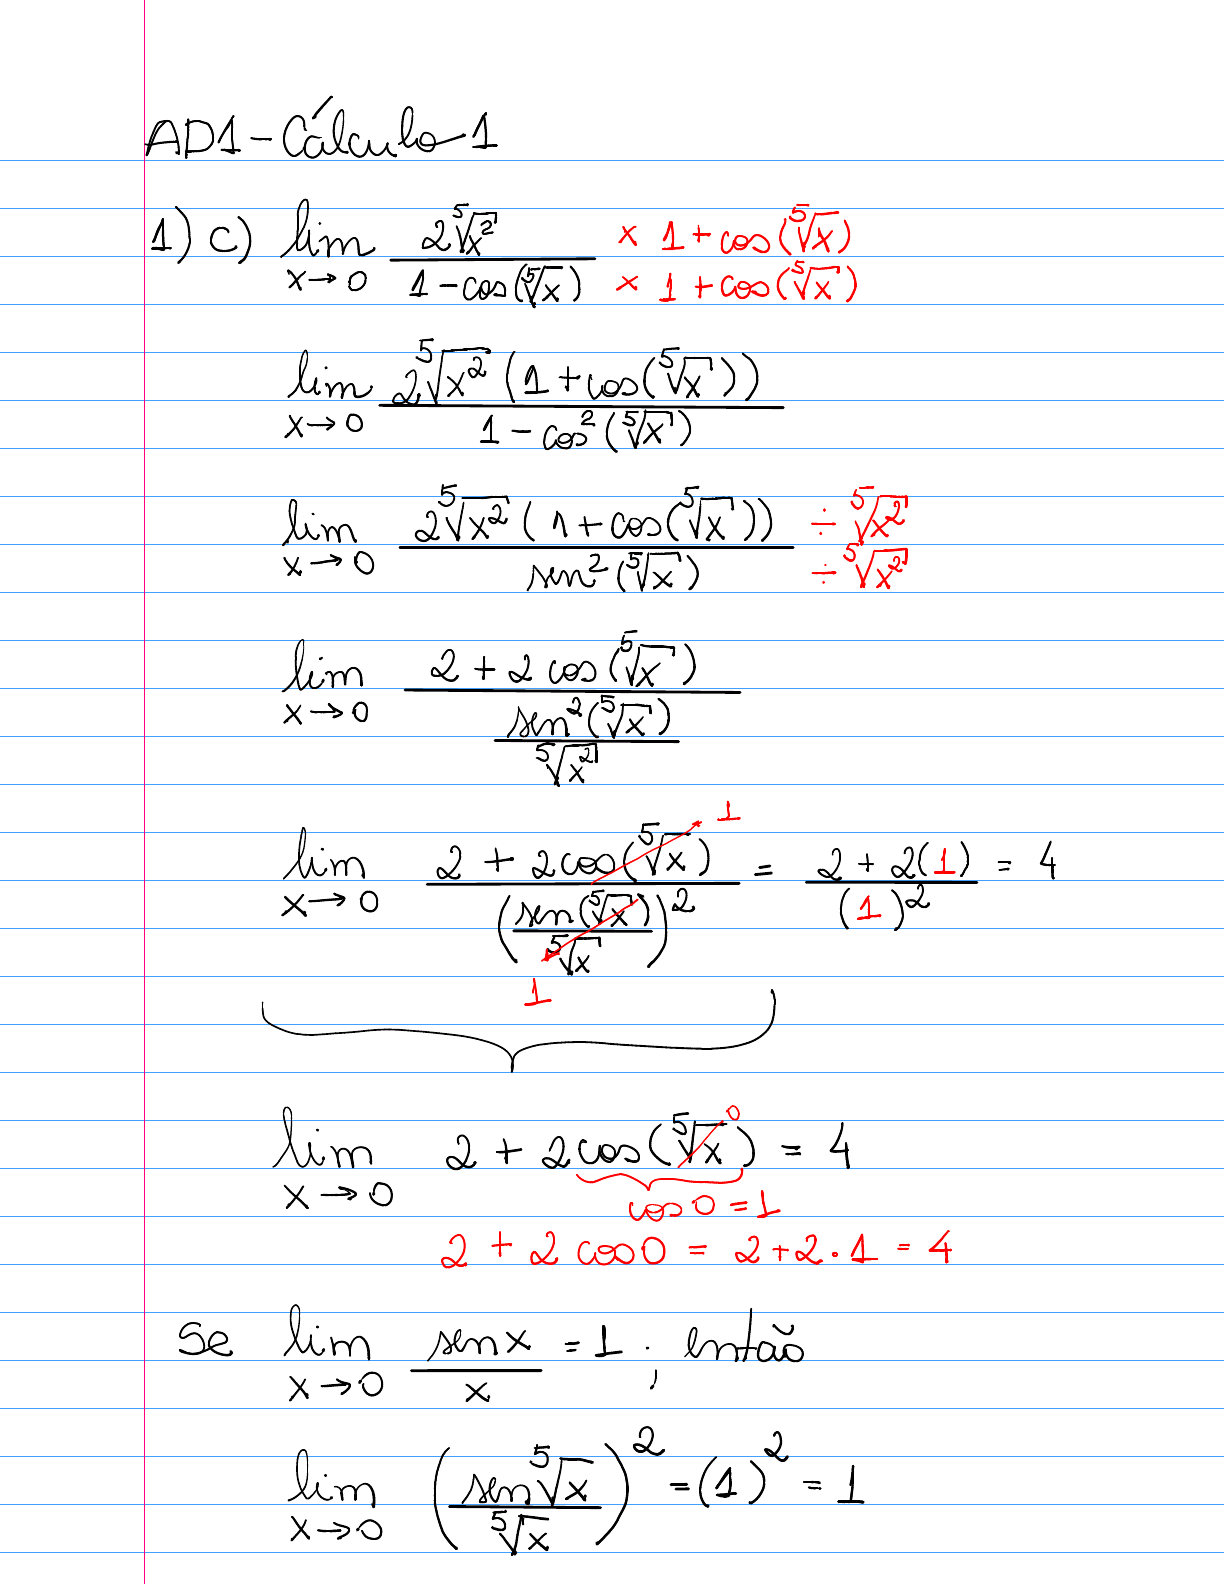 AD1 - Cálculo 1
1) c) lim x→0 2⁵√x² / 1 - cos(⁵√x) × 1 + cos(⁵√x) × 1 + cos(⁵√x)
lim x→0 2⁵√x² (1 + cos(⁵√x)) / 1 - cos²(⁵√x)
lim x→0 2⁵√x² (1 + cos(⁵√x)) / sen²(⁵√x) ÷ ⁵√x² ÷ ⁵√x²
lim x→0 2 + 2 cos(⁵√x) / sen²(⁵√x) / ⁵√x²
lim x→0 2 + 2cos(⁵√x) 1 / (sen(⁵√x) / ⁵√x)² 1 = 2 + 2(1) / (1)² = 4
lim x→0 2 + 2cos(⁵√x) 0 = 4
cos 0 = 1
2 + 2 cos 0 = 2 + 2 . 1 = 4
Se lim x→0 sen x / x = 1 ; então
lim x→0 (sen ⁵√x / ⁵√x)² = (1)² = 1